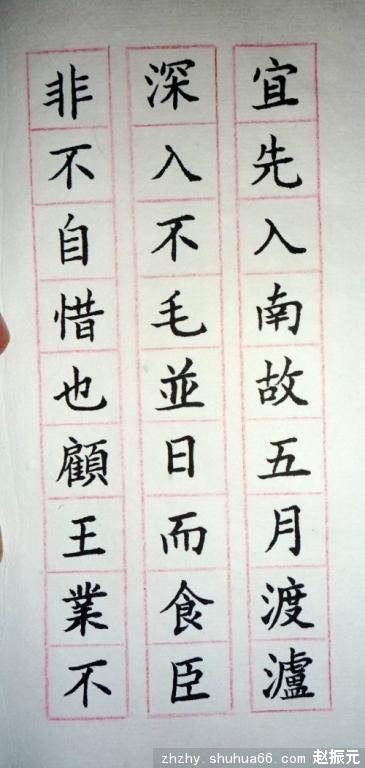 宜先入南故五月渡瀘
深入不毛並日而食臣
非不自惜也顧王業不
zhzhy.shuhua66.com 赵振元